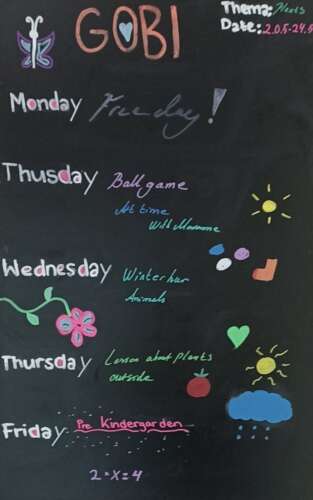 GOBI
Thema: Plants
Date: 20.5-24.5
Monday Freeday!
Thusday Ball game
Art time
With
Wednesday Winterhur
Animals
Thursday Lesson about plants
outside
Friday Pre Kindergarden
2*X=4